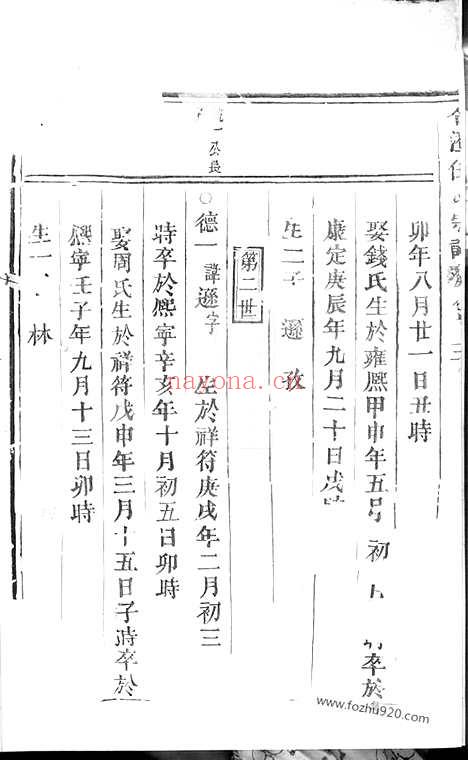 卯年八月廿一日丑時
娶錢氏生於雍熙甲申年五月初 卒於
康定庚辰年九月二十日戌時
生二子 遜 敬
第二世
一公長
○德一 諱遜字 生於祥符庚戌年二月初三
時卒於熙寧辛亥年十月初五日卯時
娶周氏生於祥符戊申年三月十五日子時卒於
熙寧壬子年九月十三日卯時
生一 林
nayona.cn
www.fozhu920.com